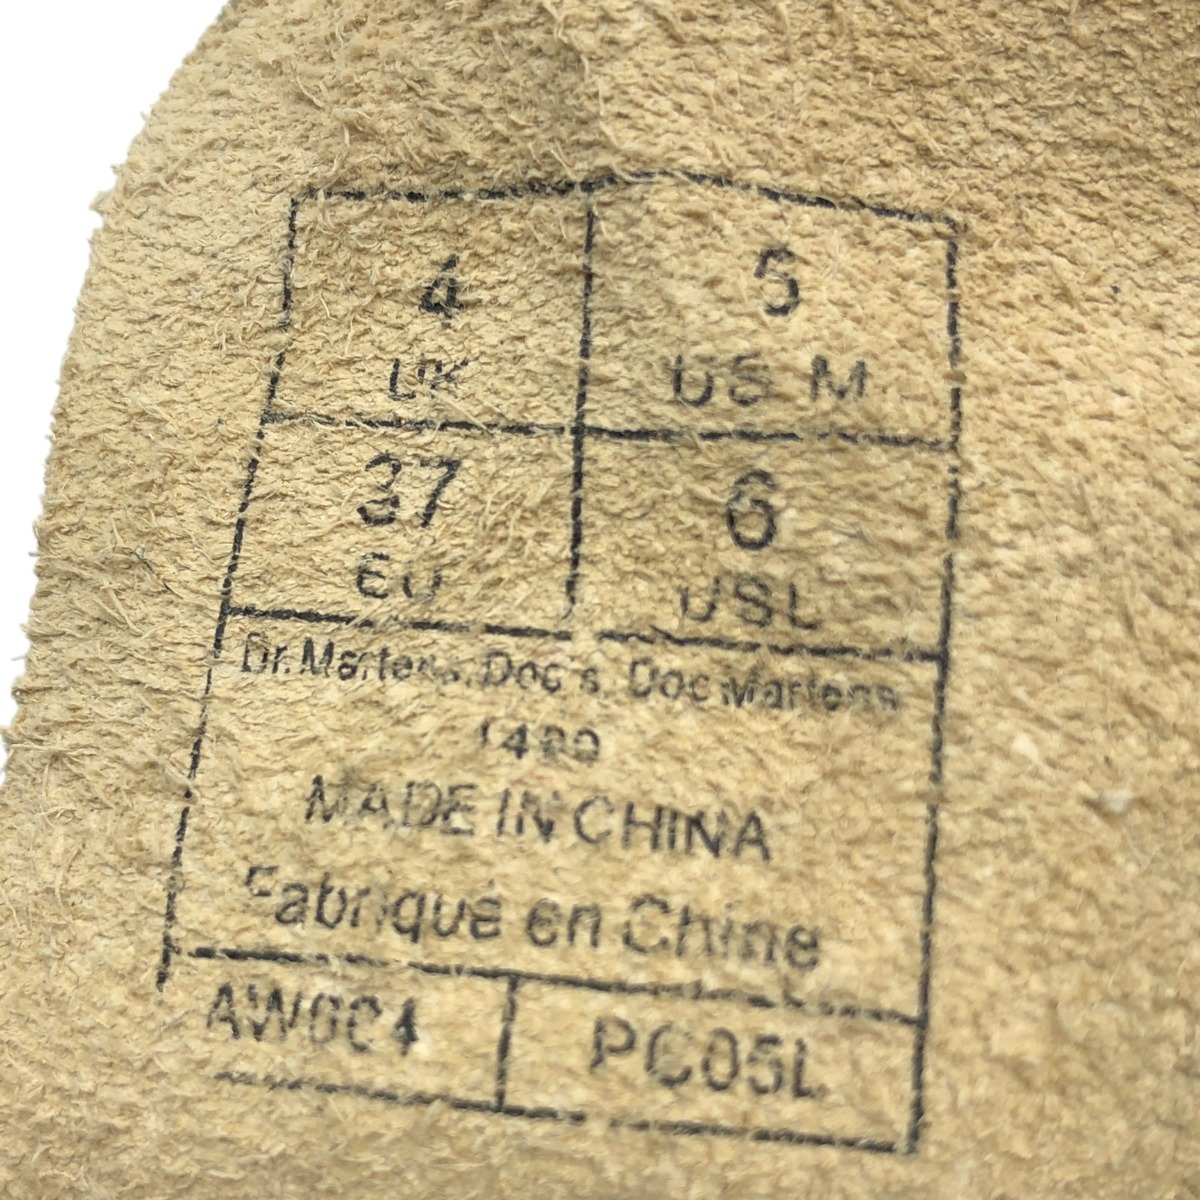 4 5
UK US M
37 6
EU USL
Dr.Martens, Doc's, Doc Martens
MADE IN CHINA
Fabriqué en Chine
PC05L